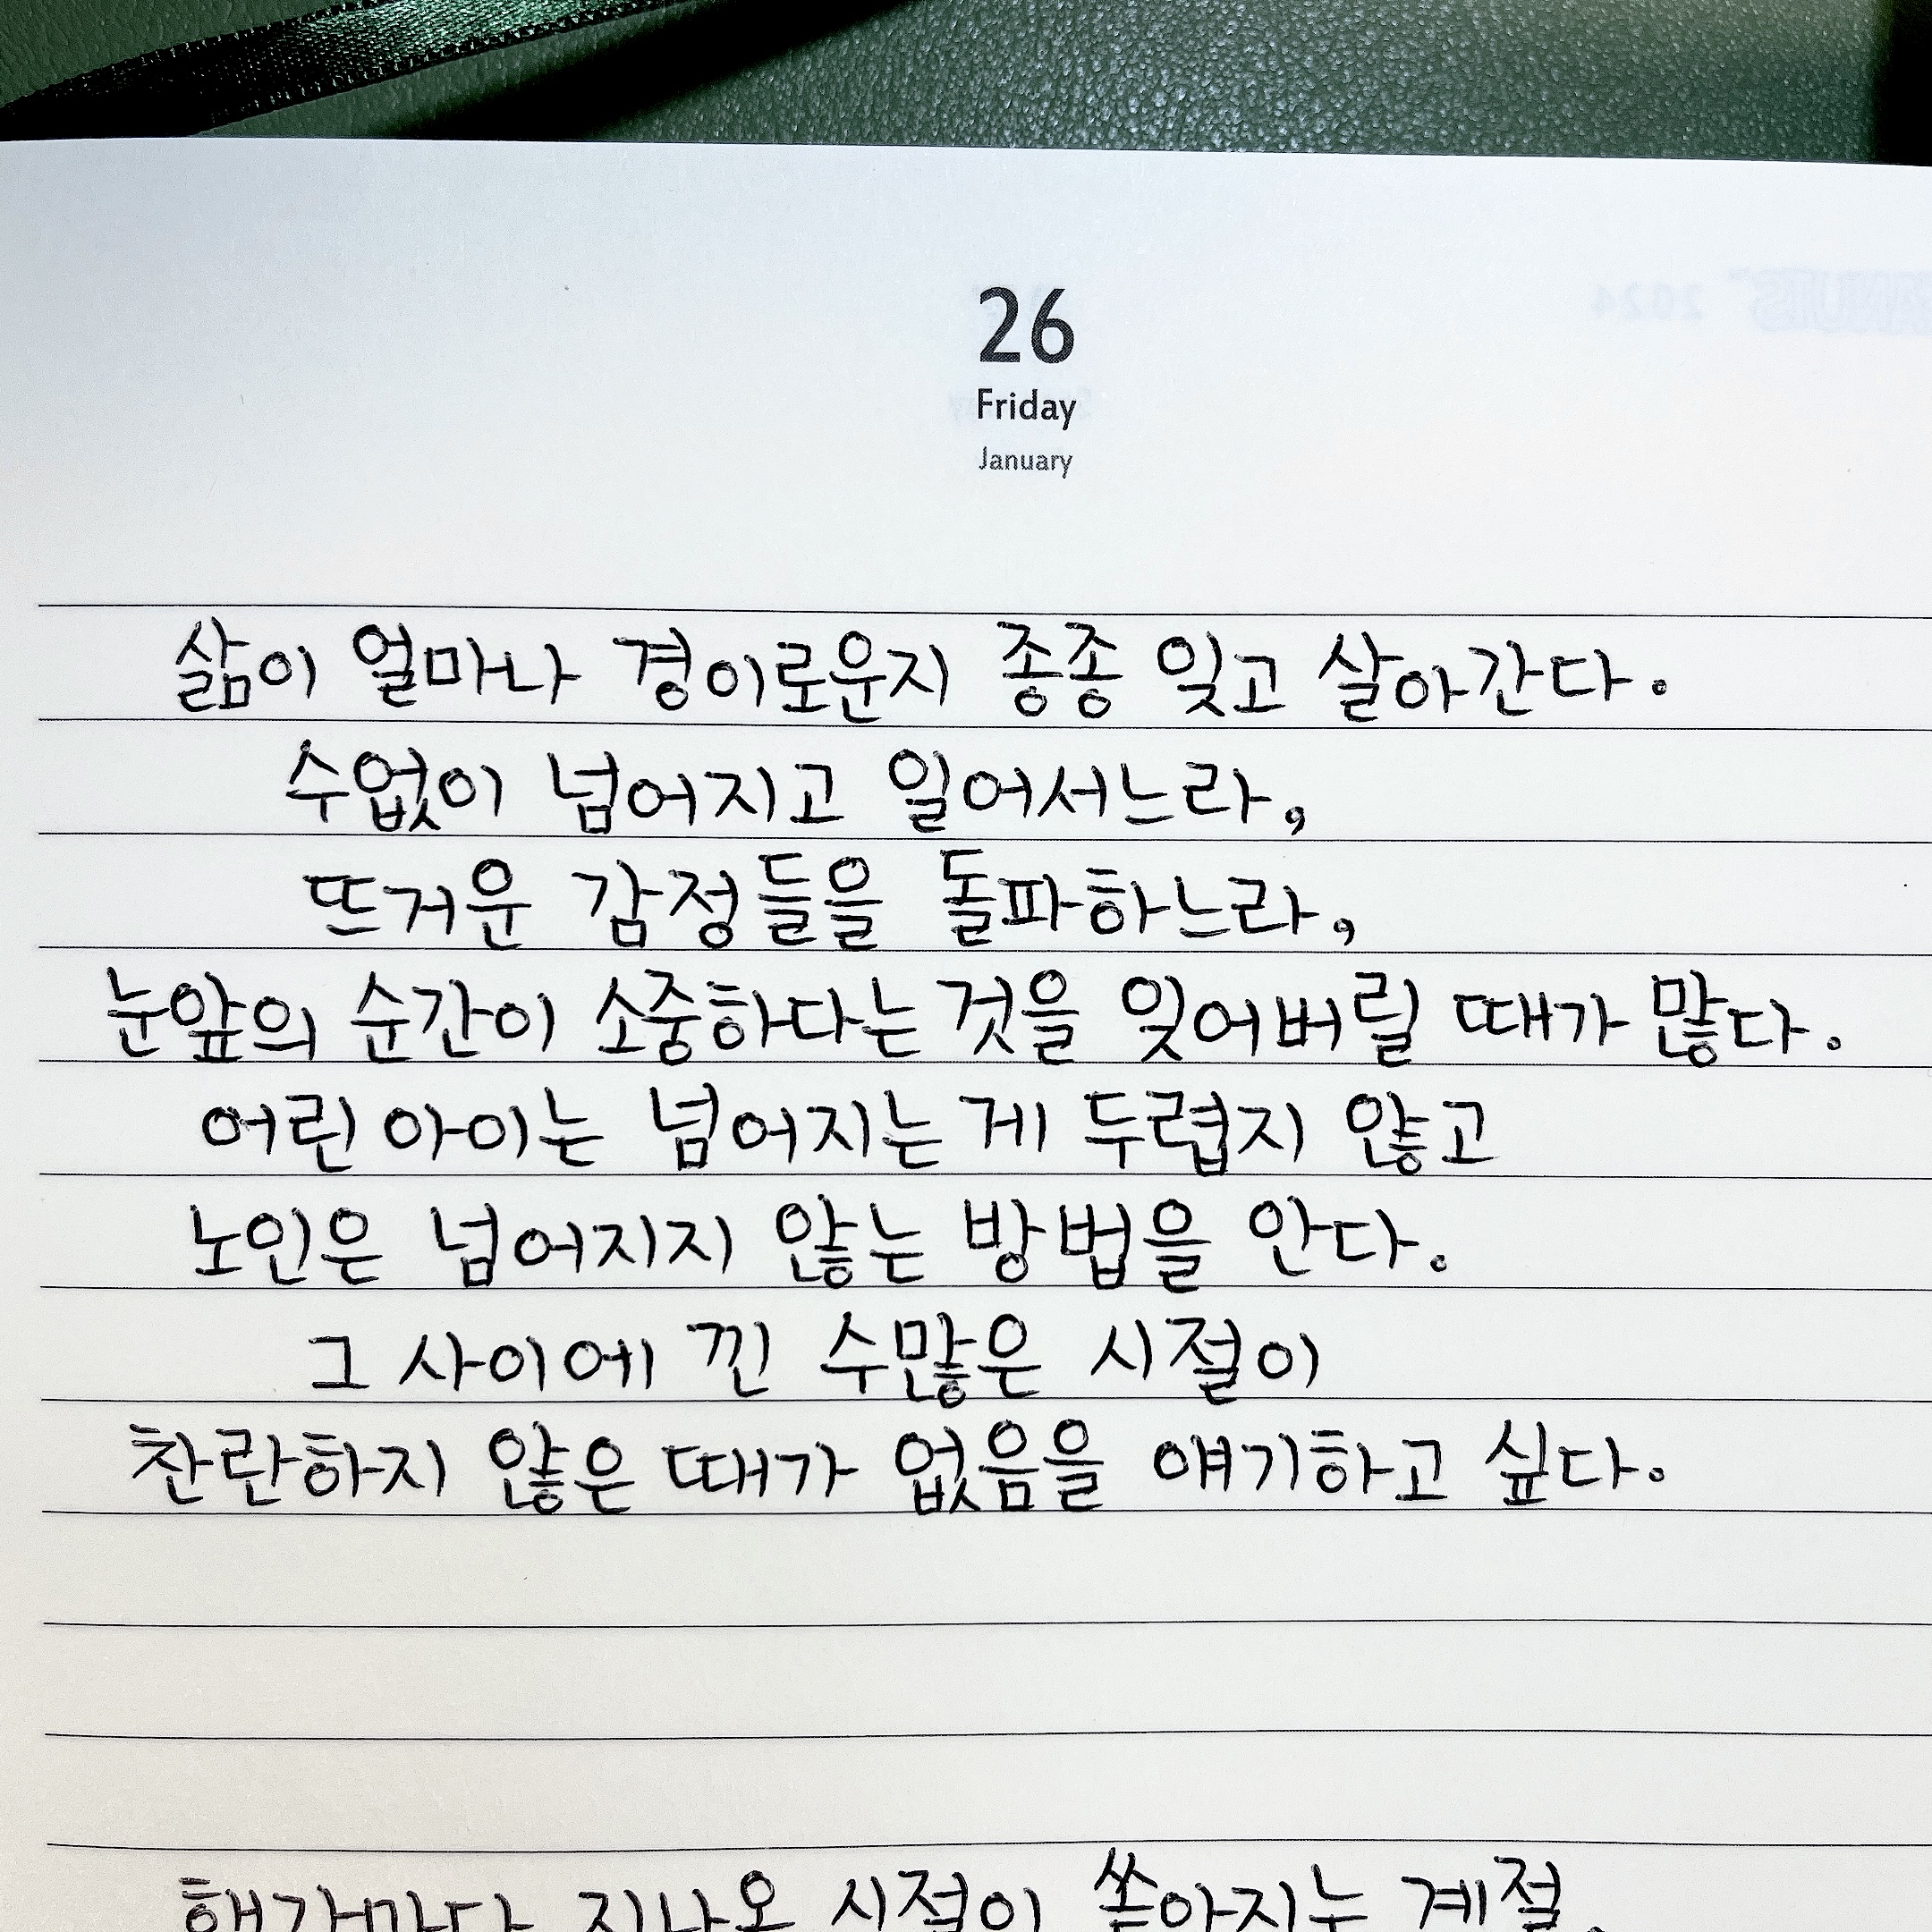 26
Friday
January
삶이 얼마나 경이로운지 종종 잊고 살아간다.
수없이 넘어지고 일어서느라,
뜨거운 감정들을 돌파하느라,
눈앞의 순간이 소중하다는 것을 잊어버릴 때가 많다.
어린 아이는 넘어지는 게 두렵지 않고
노인은 넘어지지 않는 방법을 안다.
그 사이에 낀 수많은 시절이
찬란하지 않은 때가 없음을 얘기하고 싶다.
해가마다 지나온 시절이 쏟아지는 계절.